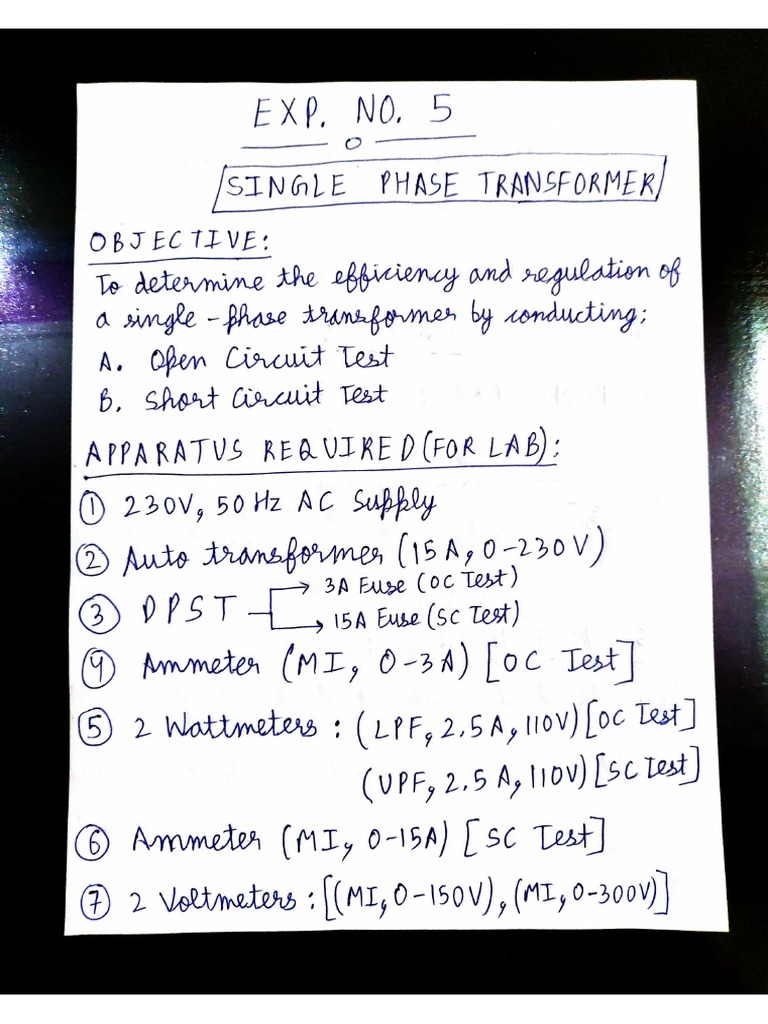 EXP. NO. 5
SINGLE PHASE TRANSFORMER
OBJECTIVE:
To determine the efficiency and regulation of
a single-phase transformer by conducting:
A. Open Circuit Test
B. Short Circuit Test
APPARATUS REQUIRED (FOR LAB):
① 230V, 50 Hz AC Supply
② Auto transformer (15A, 0-230V)
3A Fuse (OC Test)
③ DPST
15A Fuse (SC Test)
④ Ammeter (MI, 0-3A) [OC Test]
⑤ 2 Wattmeters : (LPF, 2.5A, 110V) [OC Test]
(UPF, 2.5A, 110V) [SC Test]
⑥ Ammeter (MI, 0-15A) [SC Test]
⑦ 2 Voltmeters : [(MI, 0-150V), (MI, 0-300V)]